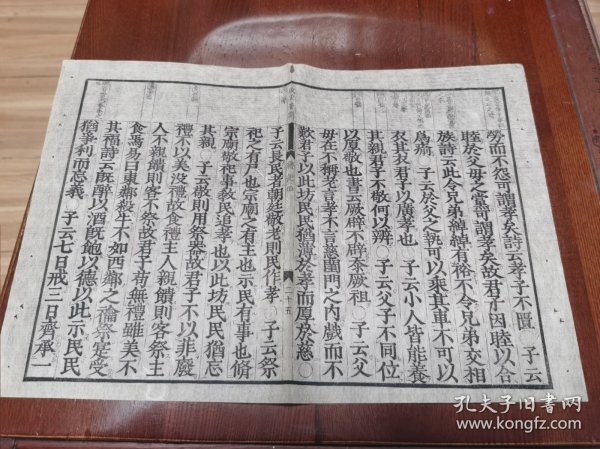 勞而不怨可謂孝矣詩云孝子不匱〇子云
睦於父母之黨可謂孝矣故君子因睦以合
族詩云此令兄弟綽綽有裕不令兄弟交相
爲瘉〇子云於父之執可以乘其車不可以
衣其衣君子以廣孝也〇子云小人皆能養
其親君子不敬何以辨〇子云父子不同位
以厚敬也書云厥辟不辟忝厥祖〇子云父
母在不稱老言孝不言慈閨門之內戲而不
歎君子以此坊民民猶薄於孝而厚於慈〇
二十五
子云長民者朝廷敬老則民作孝〇子云祭
祀之有尸也宗廟之有主也示民有事也脩
宗廟敬祀事教民追孝也以此坊民民猶忘
其親〇子云敬則用祭器故君子不以菲廢
禮不以美没禮故食禮主人親饋則客祭主
人不親饋則客不祭故君子苟無禮雖美不
食焉易曰東鄰殺牛不如西鄰之禴祭寔受
其福詩云既醉以酒既飽以德以此示民民
猶爭利而忘義〇子云七日戒三日齊承一
孔夫子旧书网
www.kongfz.com